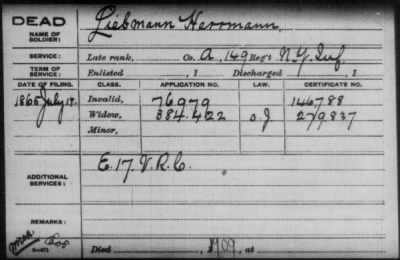 DEAD
NAME OF SOLDIER: Liebmann Herrmann,
SERVICE: Late rank, Co. A, 149 Reg't N.Y. Inf.
TERM OF SERVICE: Enlisted , 1 Discharged , 1
DATE OF FILING. CLASS. APPLICATION NO. LAW. CERTIFICATE NO.
1865 July 19. Invalid, 76979 146788
Widow, 384.422 279837
Minor,
ADDITIONAL SERVICES: E. 17. V.R.C.
REMARKS:
Died 1909, at